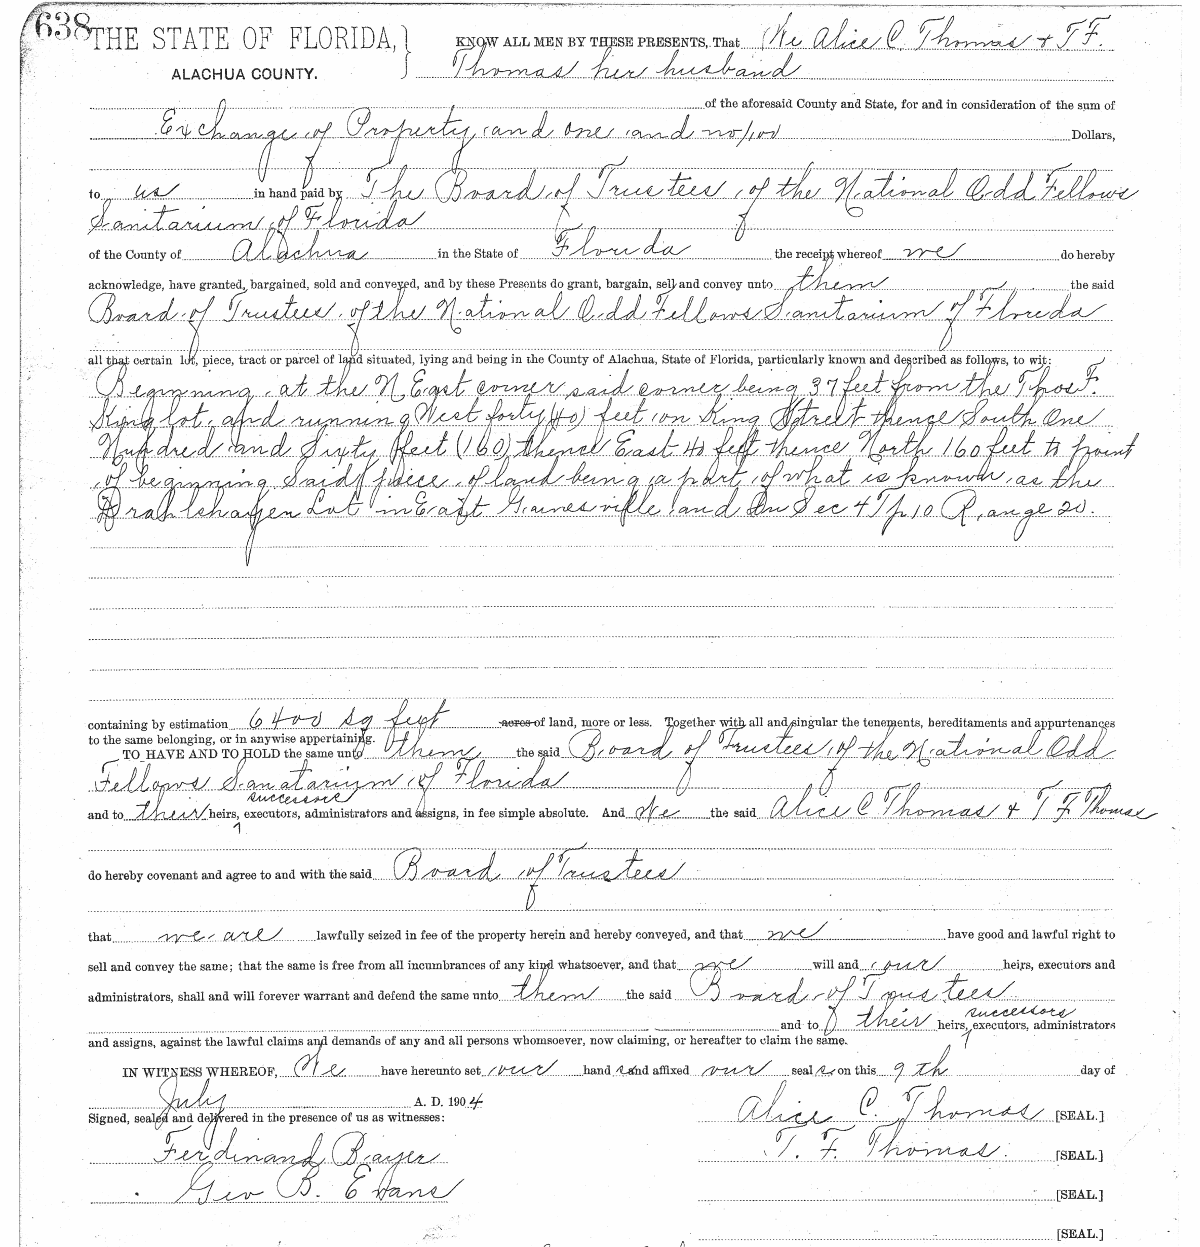 638
THE STATE OF FLORIDA, } KNOW ALL MEN BY THESE PRESENTS, That We Alice C. Thomas & T F.
ALACHUA COUNTY. Thomas her husband
of the aforesaid County and State, for and in consideration of the sum of
Exchange of Property and one and no/100 Dollars,
to us in hand paid by The Board of Trustees of the National Odd Fellows
Sanitarium of Florida
of the County of Alachua in the State of Florida the receipt whereof we do hereby
acknowledge, have granted, bargained, sold and conveyed, and by these Presents do grant, bargain, sell and convey unto them the said
Board of Trustees of the National Odd Fellows Sanitarium of Florida
all that certain lot, piece, tract or parcel of land situated, lying and being in the County of Alachua, State of Florida, particularly known and described as follows, to wit:
Beginning at the N East corner said corner being 37 feet from the Thos F.
King lot and running West forty (40) feet on King Street thence South One
Hundred and Sixty feet (160) thence East 40 feet thence North 160 feet to point
of beginning Said piece of land being a part of what is known as the
Lot in East Gainesville and In Sec 4 Tp 10 Range 20.
containing by estimation 6400 sq feet acres of land, more or less. Together with all and singular the tenements, hereditaments and appurtenances
to the same belonging, or in anywise appertaining.
TO HAVE AND TO HOLD the same unto them the said Board of Trustees of the National Odd
Fellows Sanatarium of Florida
successors
and to their heirs, executors, administrators and assigns, in fee simple absolute. And We the said Alice C Thomas & T F Thomas
do hereby covenant and agree to and with the said Board of Trustees
that we are lawfully seized in fee of the property herein and hereby conveyed, and that we have good and lawful right to
sell and convey the same; that the same is free from all incumbrances of any kind whatsoever, and that we will and our heirs, executors and
administrators, shall and will forever warrant and defend the same unto them the said Board of Trustees
successors
and to their heirs, executors, administrators
and assigns, against the lawful claims and demands of any and all persons whomsoever, now claiming, or hereafter to claim the same.
IN WITNESS WHEREOF, We have hereunto set our hands and affixed our seals on this 9th day of
July A. D. 1904
Signed, sealed and delivered in the presence of us as witnesses: Alice C. Thomas [SEAL.]
Ferdinand Bayer T. F. Thomas. [SEAL.]
Geo B. Evans [SEAL.]
[SEAL.]